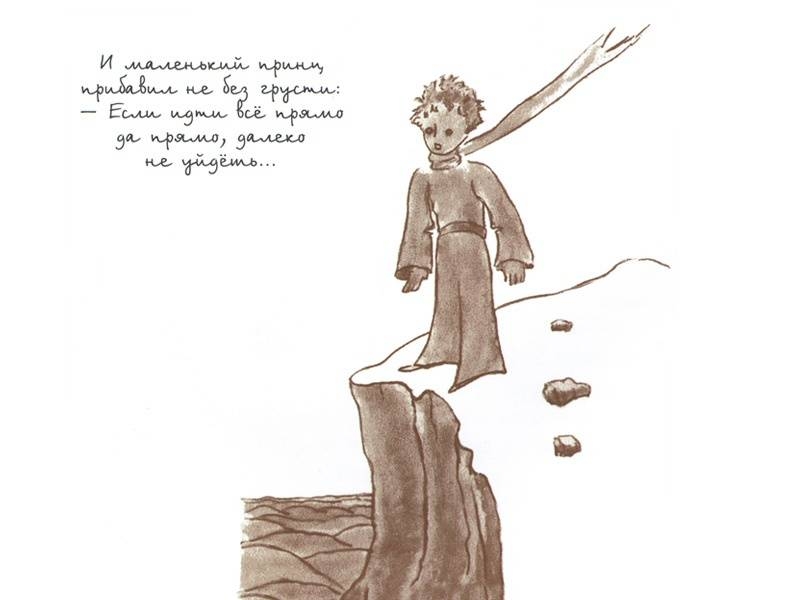 И маленький принц
прибавил не без грусти:
— Если идти всё прямо
да прямо, далеко
не уйдёшь...